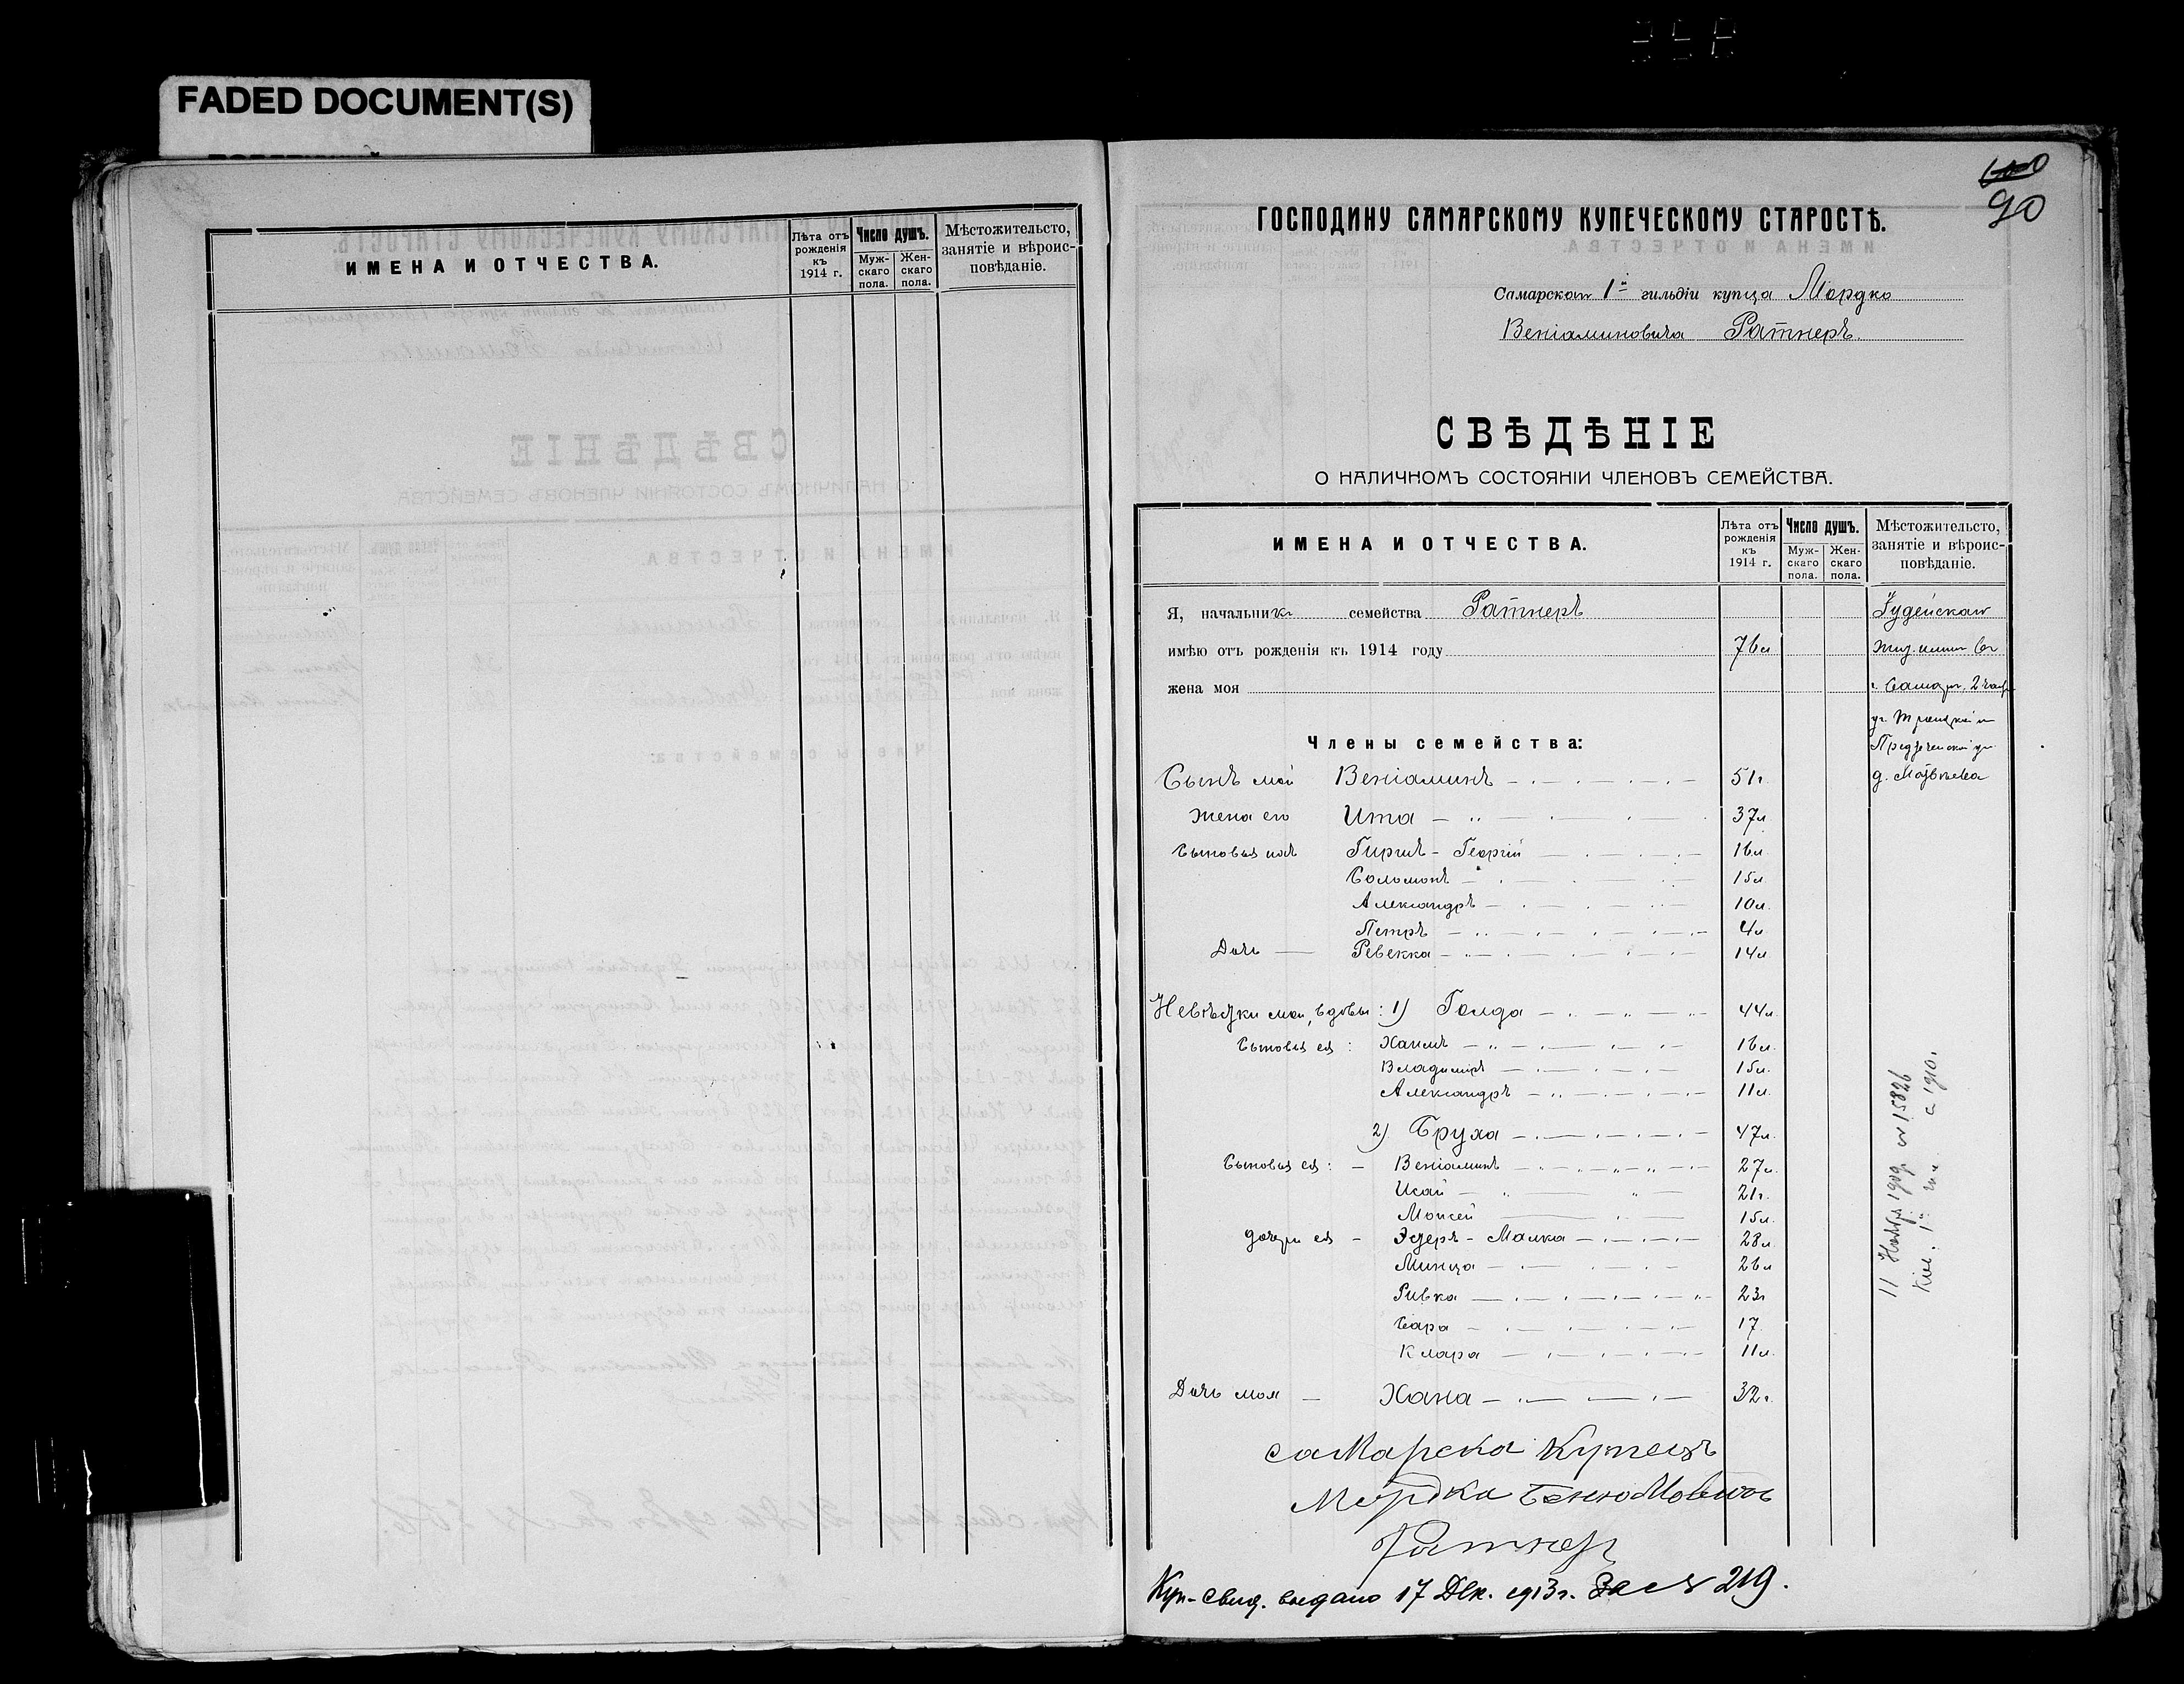 FADED DOCUMENT(S)
ИМЕНА И ОТЧЕСТВА.
Лѣта отъ рожденія къ 1914 г.
Число душъ.
Муж-скаго пола.
Жен-скаго пола.
Мѣстожительсто, занятіе и вѣроис-повѣданіе.
100
90
ГОСПОДИНУ САМАРСКОМУ КУПЕЧЕСКОМУ СТАРОСТѢ.
Самарскаго 1й гильдіи купца Мордко
Веніаминовича Ратнеръ.
СВѢДѢНІЕ
О НАЛИЧНОМЪ СОСТОЯНІИ ЧЛЕНОВЪ СЕМЕЙСТВА.
ИМЕНА И ОТЧЕСТВА.
Лѣта отъ рожденія къ 1914 г.
Число душъ.
Муж-скаго пола.
Жен-скаго пола.
Мѣстожительсто, занятіе и вѣроис-повѣданіе.
Я, начальникъ семейства Ратнеръ Іудейскаго
имѣю отъ рожденія къ 1914 году 76л
жена моя г. Самарѣ, 2 части
уг. Троицкой и
Предтеченской ул.
Члены семейства:
Сынъ мой Веніаминъ 51г. д.
Жена его Ита 37л.
Сыновья ихъ Гиршъ-Георгій 16л.
Соломонъ 15л.
Александръ 10л.
Петръ 4л.
Дочь Ревекка 14л.
Невѣстки мои, вдовы: 1) Голда 44л.
Сыновья ея: Хаимъ 16л.
Владиміръ 15л.
Александръ 11л.
2) Бруха 47л.
Сыновья ея: - Веніаминъ 27л.
Исай 21г.
Моисей 15л.
Дочери ея - Эстеръ-Малка 28л.
Минца 26л
Ривка 23г
Сара 17.
Клара 11л.
Дочь моя - Хана 32г.
11 Ноября 1909 г. № 15826
1й с 1910.
самарска Купецъ
Мордка Бенюмовичъ
Ратнер
Куп-свид. выдано 17 Дек. 1913г. За № 219.